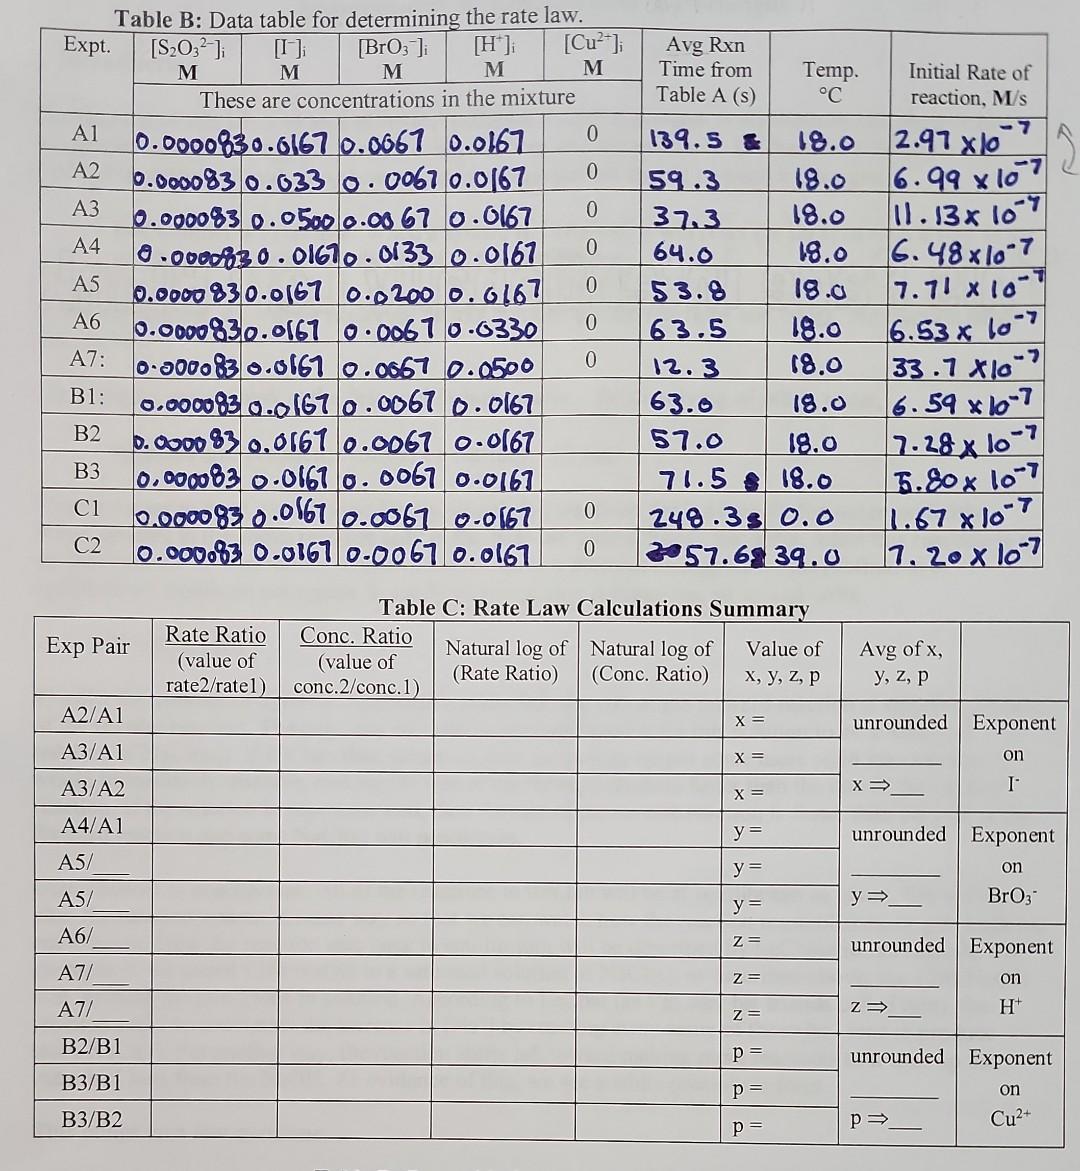 Table B: Data table for determining the rate law.
Expt. [S₂O₃²⁻]ᵢ M [I⁻]ᵢ M [BrO₃⁻]ᵢ M [H⁺]ᵢ M [Cu²⁺]ᵢ M Avg Rxn Time from Table A (s) Temp. °C Initial Rate of reaction, M/s
These are concentrations in the mixture
A1 0.000083 0.0167 0.0067 0.0167 0 139.5 18.0 2.97 x10⁻⁷
A2 0.000083 0.033 0.0067 0.0167 0 59.3 18.0 6.99 x 10⁻⁷
A3 0.000083 0.0500 0.0067 0.0167 0 37.3 18.0 11.13x 10⁻⁷
A4 0.000083 0.0167 0.0133 0.0167 0 64.0 18.0 6.48x10⁻⁷
A5 0.000083 0.0167 0.0200 0.0167 0 53.8 18.0 7.71 x 10⁻⁷
A6 0.000083 0.0167 0.0067 0.0330 0 63.5 18.0 6.53x 10⁻⁷
A7: 0.000083 0.0167 0.0067 0.0500 0 12.3 18.0 33.7 x10⁻⁷
B1: 0.000083 0.0167 0.0067 0.0167 63.0 18.0 6.59 x10⁻⁷
B2 0.000083 0.0167 0.0067 0.0167 57.0 18.0 7.28 x 10⁻⁷
B3 0.000083 0.0167 0.0067 0.0167 71.5 18.0 5.80x 10⁻⁷
C1 0.000083 0.0167 0.0067 0.0167 0 248.3s 0.0 1.67 x10⁻⁷
C2 0.000083 0.0167 0.0067 0.0167 0 57.6 39.0 7.20 x 10⁻⁷
Table C: Rate Law Calculations Summary
Exp Pair Rate Ratio (value of rate2/rate1) Conc. Ratio (value of conc.2/conc.1) Natural log of (Rate Ratio) Natural log of (Conc. Ratio) Value of x, y, z, p Avg of x, y, z, p
A2/A1 x = unrounded Exponent
A3/A1 x = ______ on
A3/A2 x = x ⇒___ I⁻
A4/A1 y = unrounded Exponent
A5/___ y = ______ on
A5/___ y = y ⇒___ BrO₃⁻
A6/___ z = unrounded Exponent
A7/___ z = ______ on
A7/___ z = z ⇒___ H⁺
B2/B1 p = unrounded Exponent
B3/B1 p = ______ on
B3/B2 p = p ⇒___ Cu²⁺